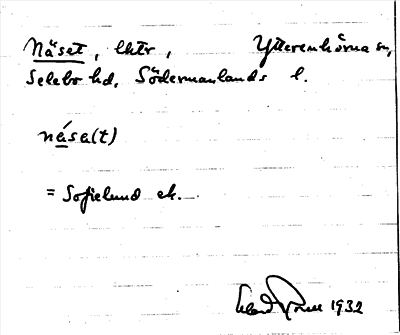 Näset, lktr, Ytterenhörna sn,
Selebo hd, Södermanlands l.
nǻsa(t)
= Sofielund ek.
1932